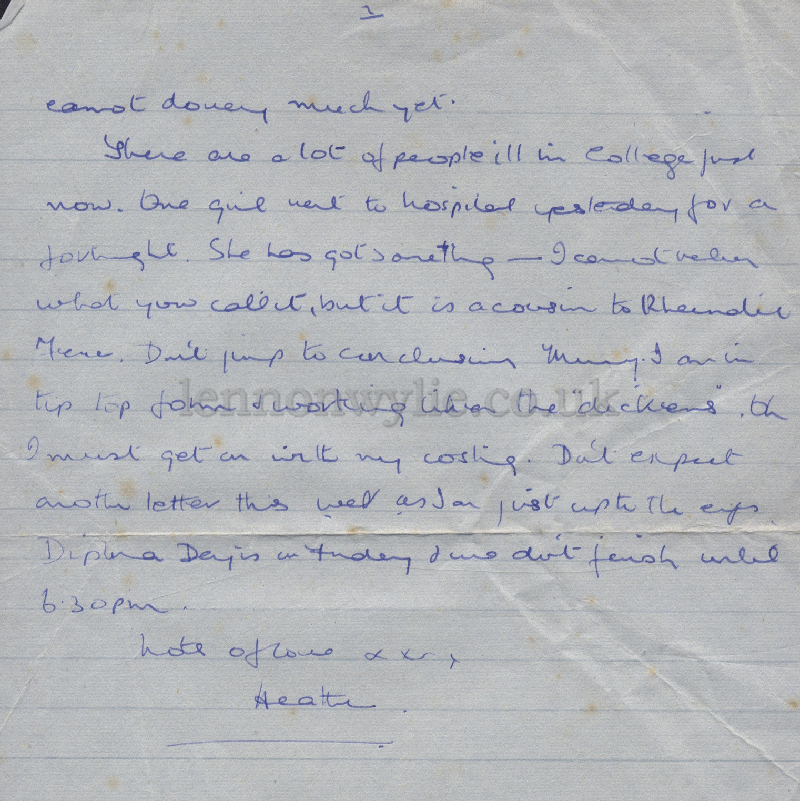 2
cannot do very much yet.
There are a lot of people ill in College just
now. One girl went to hospital yesterday for a
fortnight. She has got something — I cannot
what you call it, but it is a cousin to
Don't jump to conclusions Mummy. I am in
tip top form & working like the "dickens". Oh
I must get on with my costing. Don't expect
another letter this week as I am just up to the eyes.
Diploma Day is on Friday & we don't finish until
6.30pm.
Lots of love x x x x
Heather.
lennonwylie.co.uk